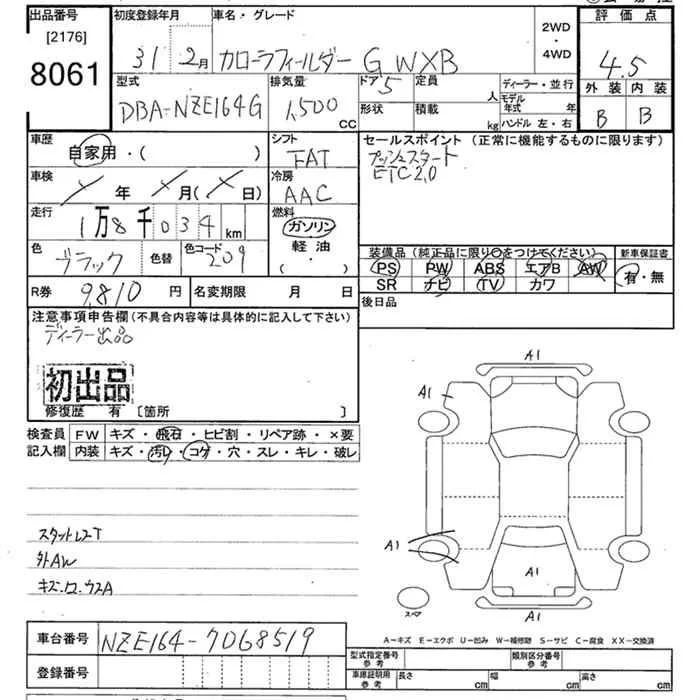 出品番号
[2176]
8061
初度登録年月
31 2月
車名・グレード
カローラフィールダー G WXB
2WD
・
4WD
評価点
4.5
外装 内装
B B
型式
DBA-NZE164G
排気量
1,500 CC
ドア 5
形状
定員 人
積載 kg
ディーラー・並行
モデル年式 年
ハンドル 左・右
車歴
自家用・( )
シフト
FAT
セールスポイント (正常に機能するものに限ります)
プッシュスタート
ETC2.0
車検
年 月( 日)
冷房
AAC
走行
1万8千034km
燃料
ガソリン
軽油
( ・ )
色
ブラック
色替
色コード
209
装備品(純正品に限り○をつけてください)
PS PW ABS エアB AW
SR ナビ TV カワ
新車保証書
有・無
R券 9,810円
名変期限 月 日
後日品
注意事項申告欄(不具合内容等は具体的に記入して下さい)
ディーラー出品
初出品
修復歴 有 [箇所 ]
検査員
記入欄
FW キズ・飛石・ヒビ割・リペア跡・×要
内装 キズ・汚れ・コゲ・穴・スレ・キレ・破レ
スタットレスT
外AW
A1
A1
A1
A1
A1
スペア
A-キズ E-エクボ U-凹み W-補修跡 S-サビ C-腐食 XX-交換済
車台番号
NZE164-7068519
登録番号
型式指定番号
参考
類別区分番号
参考
車庫証明用
参考
長さ cm
幅 cm
高さ cm